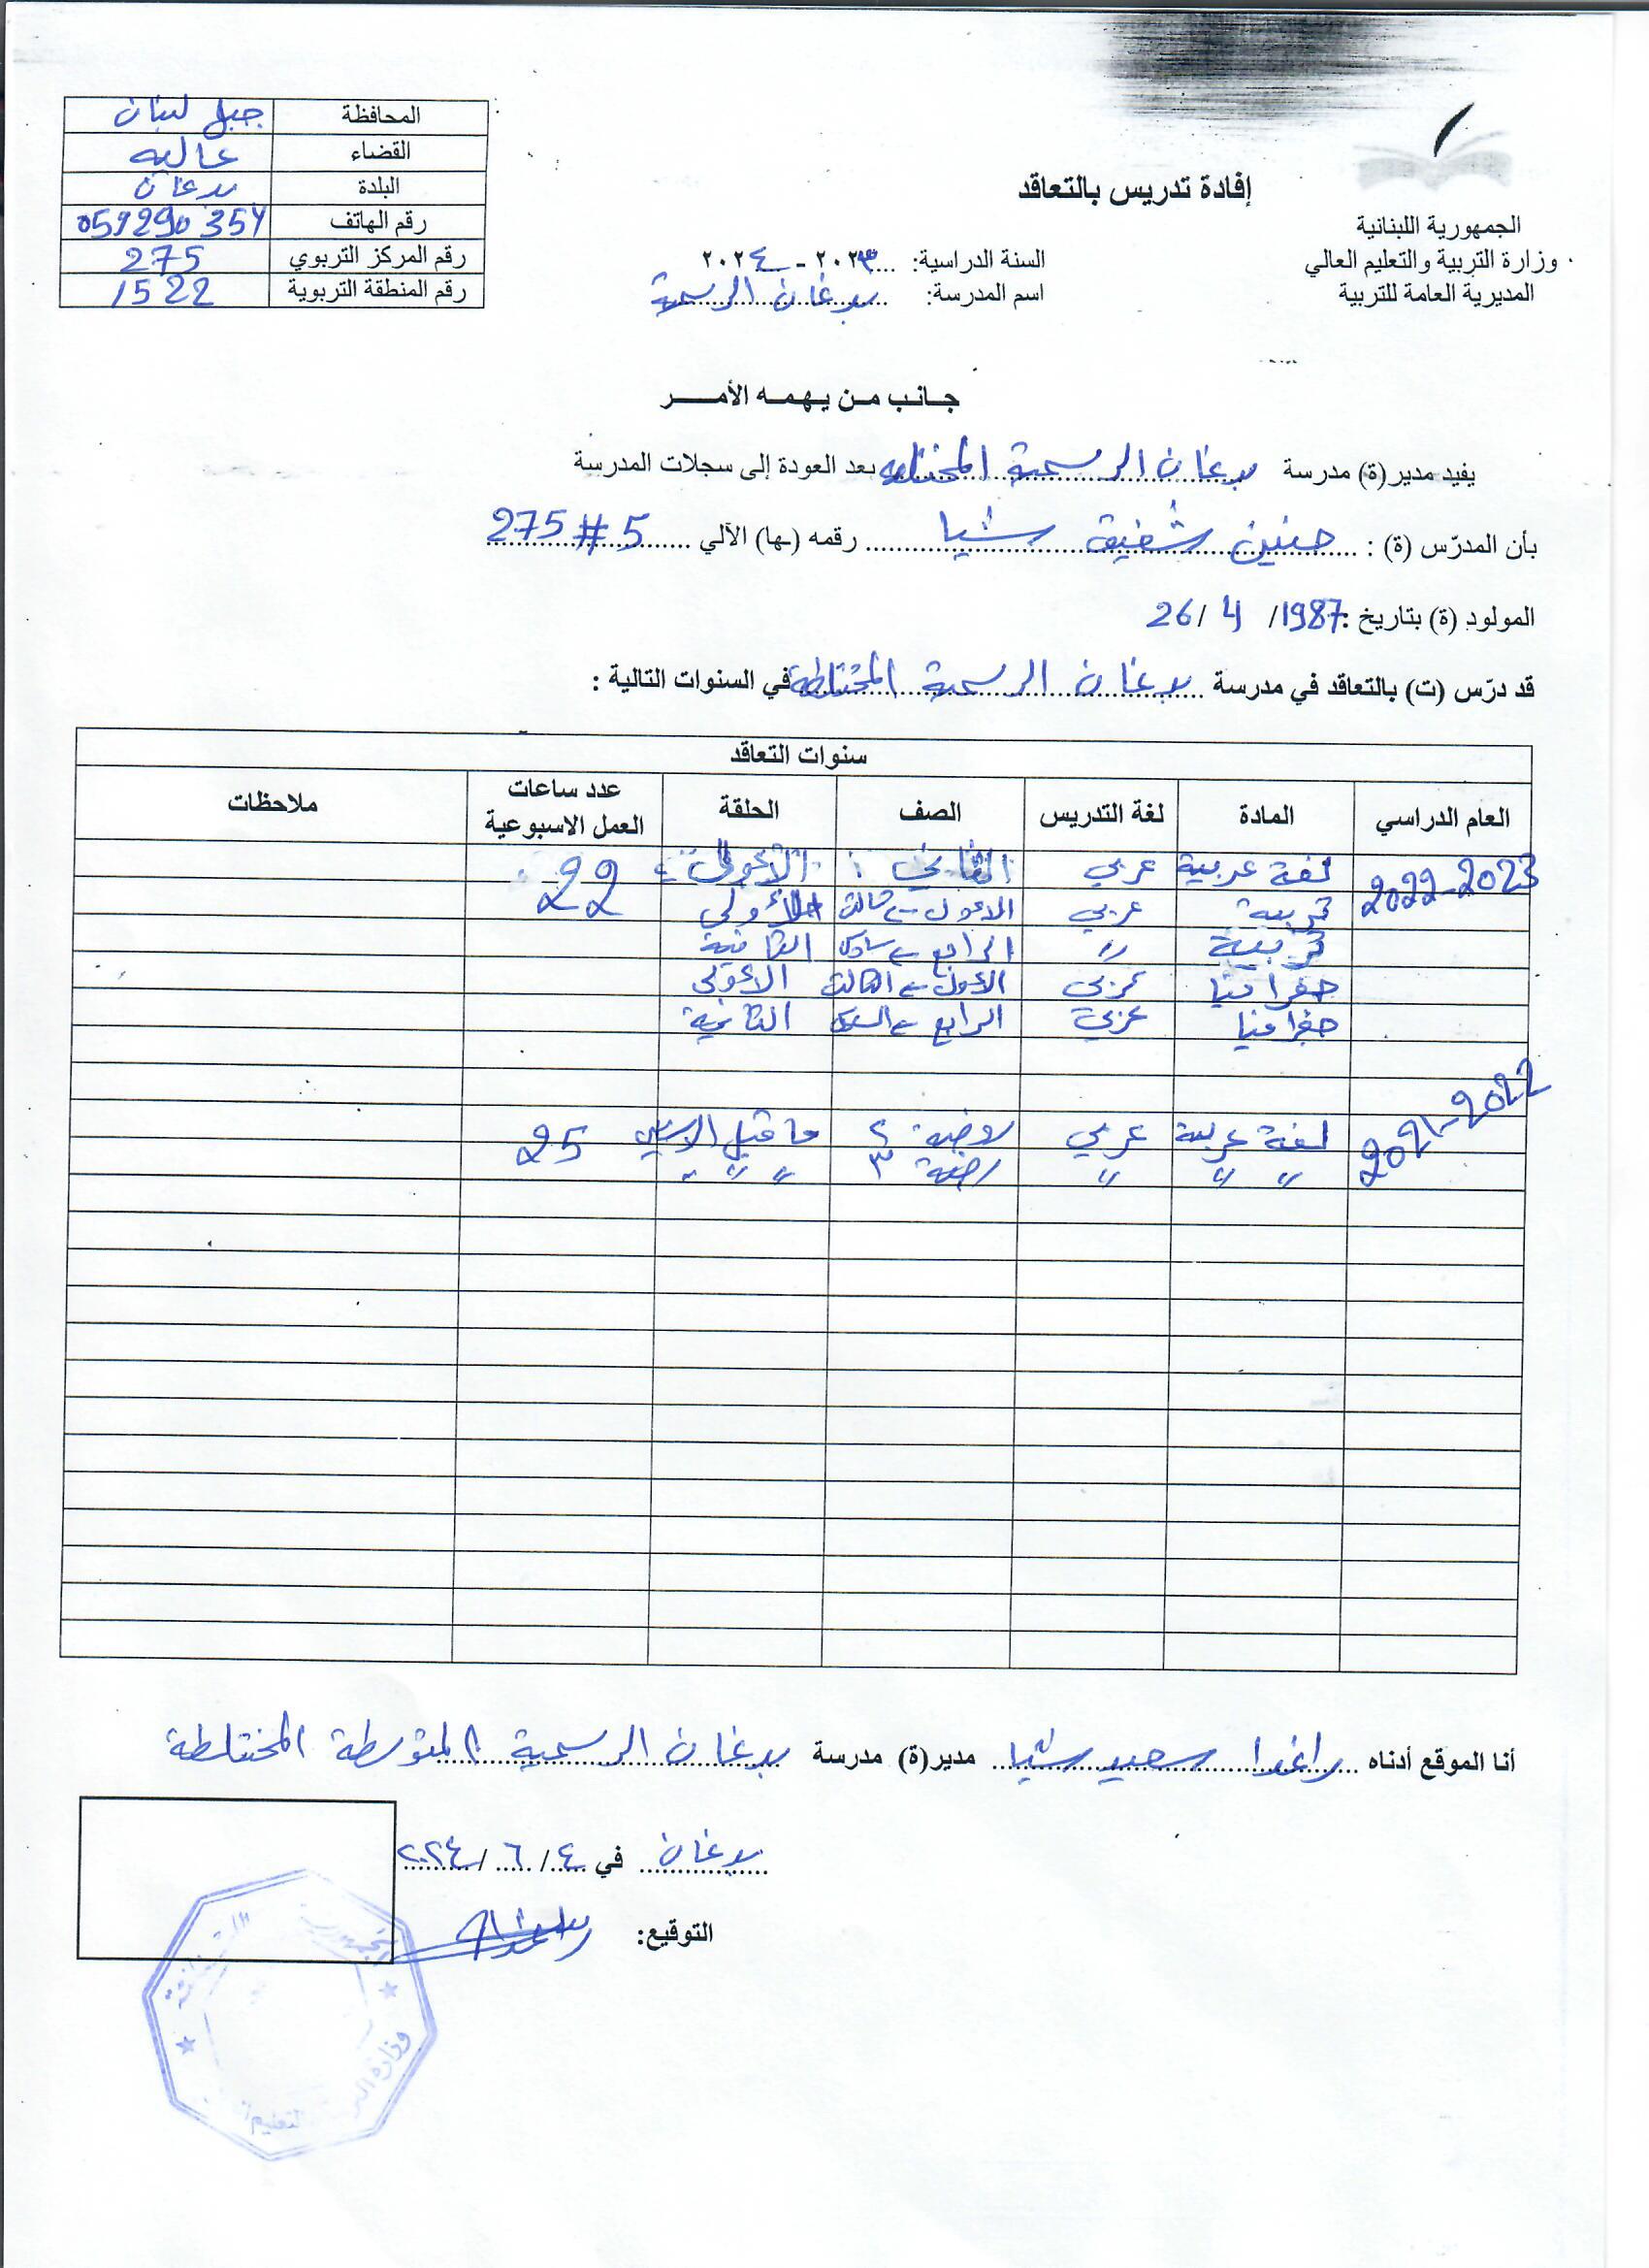 إفادة تدريس بالتعاقد
الجمهورية اللبنانية
وزارة التربية والتعليم العالي
المديرية العامة للتربية
السنة الدراسية: ٢٠٢٣ - ٢٠٢٤
اسم المدرسة: بدغان الرسمية
المحافظة جبل لبنان
القضاء عاليه
البلدة بدغان
رقم الهاتف
رقم المركز التربوي 275
رقم المنطقة التربوية 1522
جانب من يهمه الأمر
يفيد مدير(ة) مدرسة بدغان الرسمية المختلطة بعد العودة إلى سجلات المدرسة
بأن المدرّس (ة) : حنين شفيق شيا رقمه (ـها) الآلي 275#5
المولود (ة) بتاريخ : 26/ 4 /1987
قد درّس (ت) بالتعاقد في مدرسة بدغان الرسمية المختلطة في السنوات التالية :
سنوات التعاقد
العام الدراسي المادة لغة التدريس الصف الحلقة عدد ساعات العمل الاسبوعية ملاحظات
2022-2023 لغة عربية عربي الثاني الأولى 22
تربية عربي الأول ← ثالث الأولى
تربية " الرابع ← سادس الثانية
جغرافيا عربي الأول ← الثالث الأولى
جغرافيا عربي الرابع ← السادس الثانية
2021-2022 لغة عربية عربي روضة ٢ ما قبل 25
" " " روضة ٣ " " "
أنا الموقع أدناه راغدا سعيد شيا مدير(ة) مدرسة بدغان الرسمية المتوسطة المختلطة
بدغان في ٤ / ٦ / ٢٠٢٤
التوقيع:
الجمهورية
وزارة